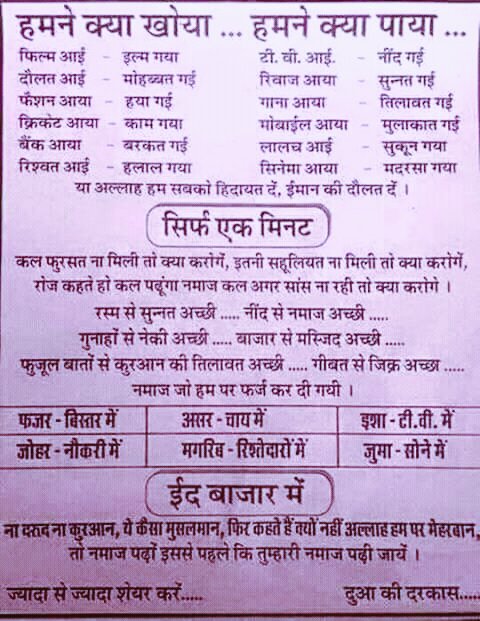 हमने क्या खोया ... हमने क्या पाया ...
फिल्म आई - इल्म गया टी. वी. आई. - नींद गई
दौलत आई - मोहब्बत गई रिवाज आया - सुन्नत गई
फैशन आया - हया गई गाना आया - तिलावत गई
क्रिकेट आया - काम गया मोबाईल आया - मुलाकात गई
बैंक आया - बरकत गई लालच आई - सुकून गया
रिश्वत आई - हलाल गया सिनेमा आया - मदरसा गया
या अल्लाह हम सबको हिदायत दें, ईमान की दौलत दें ।
सिर्फ एक मिनट
कल फुरसत ना मिली तो क्या करोगें, इतनी सहूलियत ना मिली तो क्या करोगें,
रोज कहते हो कल पढूंगा नमाज कल अगर सांस ना रही तो क्या करोगे ।
रस्म से सुन्नत अच्छी ..... नींद से नमाज अच्छी .....
गुनाहों से नेकी अच्छी ..... बाजार से मस्जिद अच्छी .....
फुजूल बातों से कुरआन की तिलावत अच्छी ..... गीबत से जिक्र अच्छा .....
नमाज जो हम पर फर्ज कर दी गयी ।
फजर - बिस्तर में असर - चाय में इशा - टी.वी. में
जोहर - नौकरी में मगरिब - रिश्तेदारों में जुमा - सोने में
ईद बाजार में
ना दरुद ना कुरआन, ये कैसा मुसलमान, फिर कहते हैं क्यों नहीं अल्लाह हम पर मेहरबान,
तो नमाज पढ़ों इससे पहले कि तुम्हारी नमाज पढ़ी जायें ।
ज्यादा से ज्यादा शेयर करें..... दुआ की दरकास.....